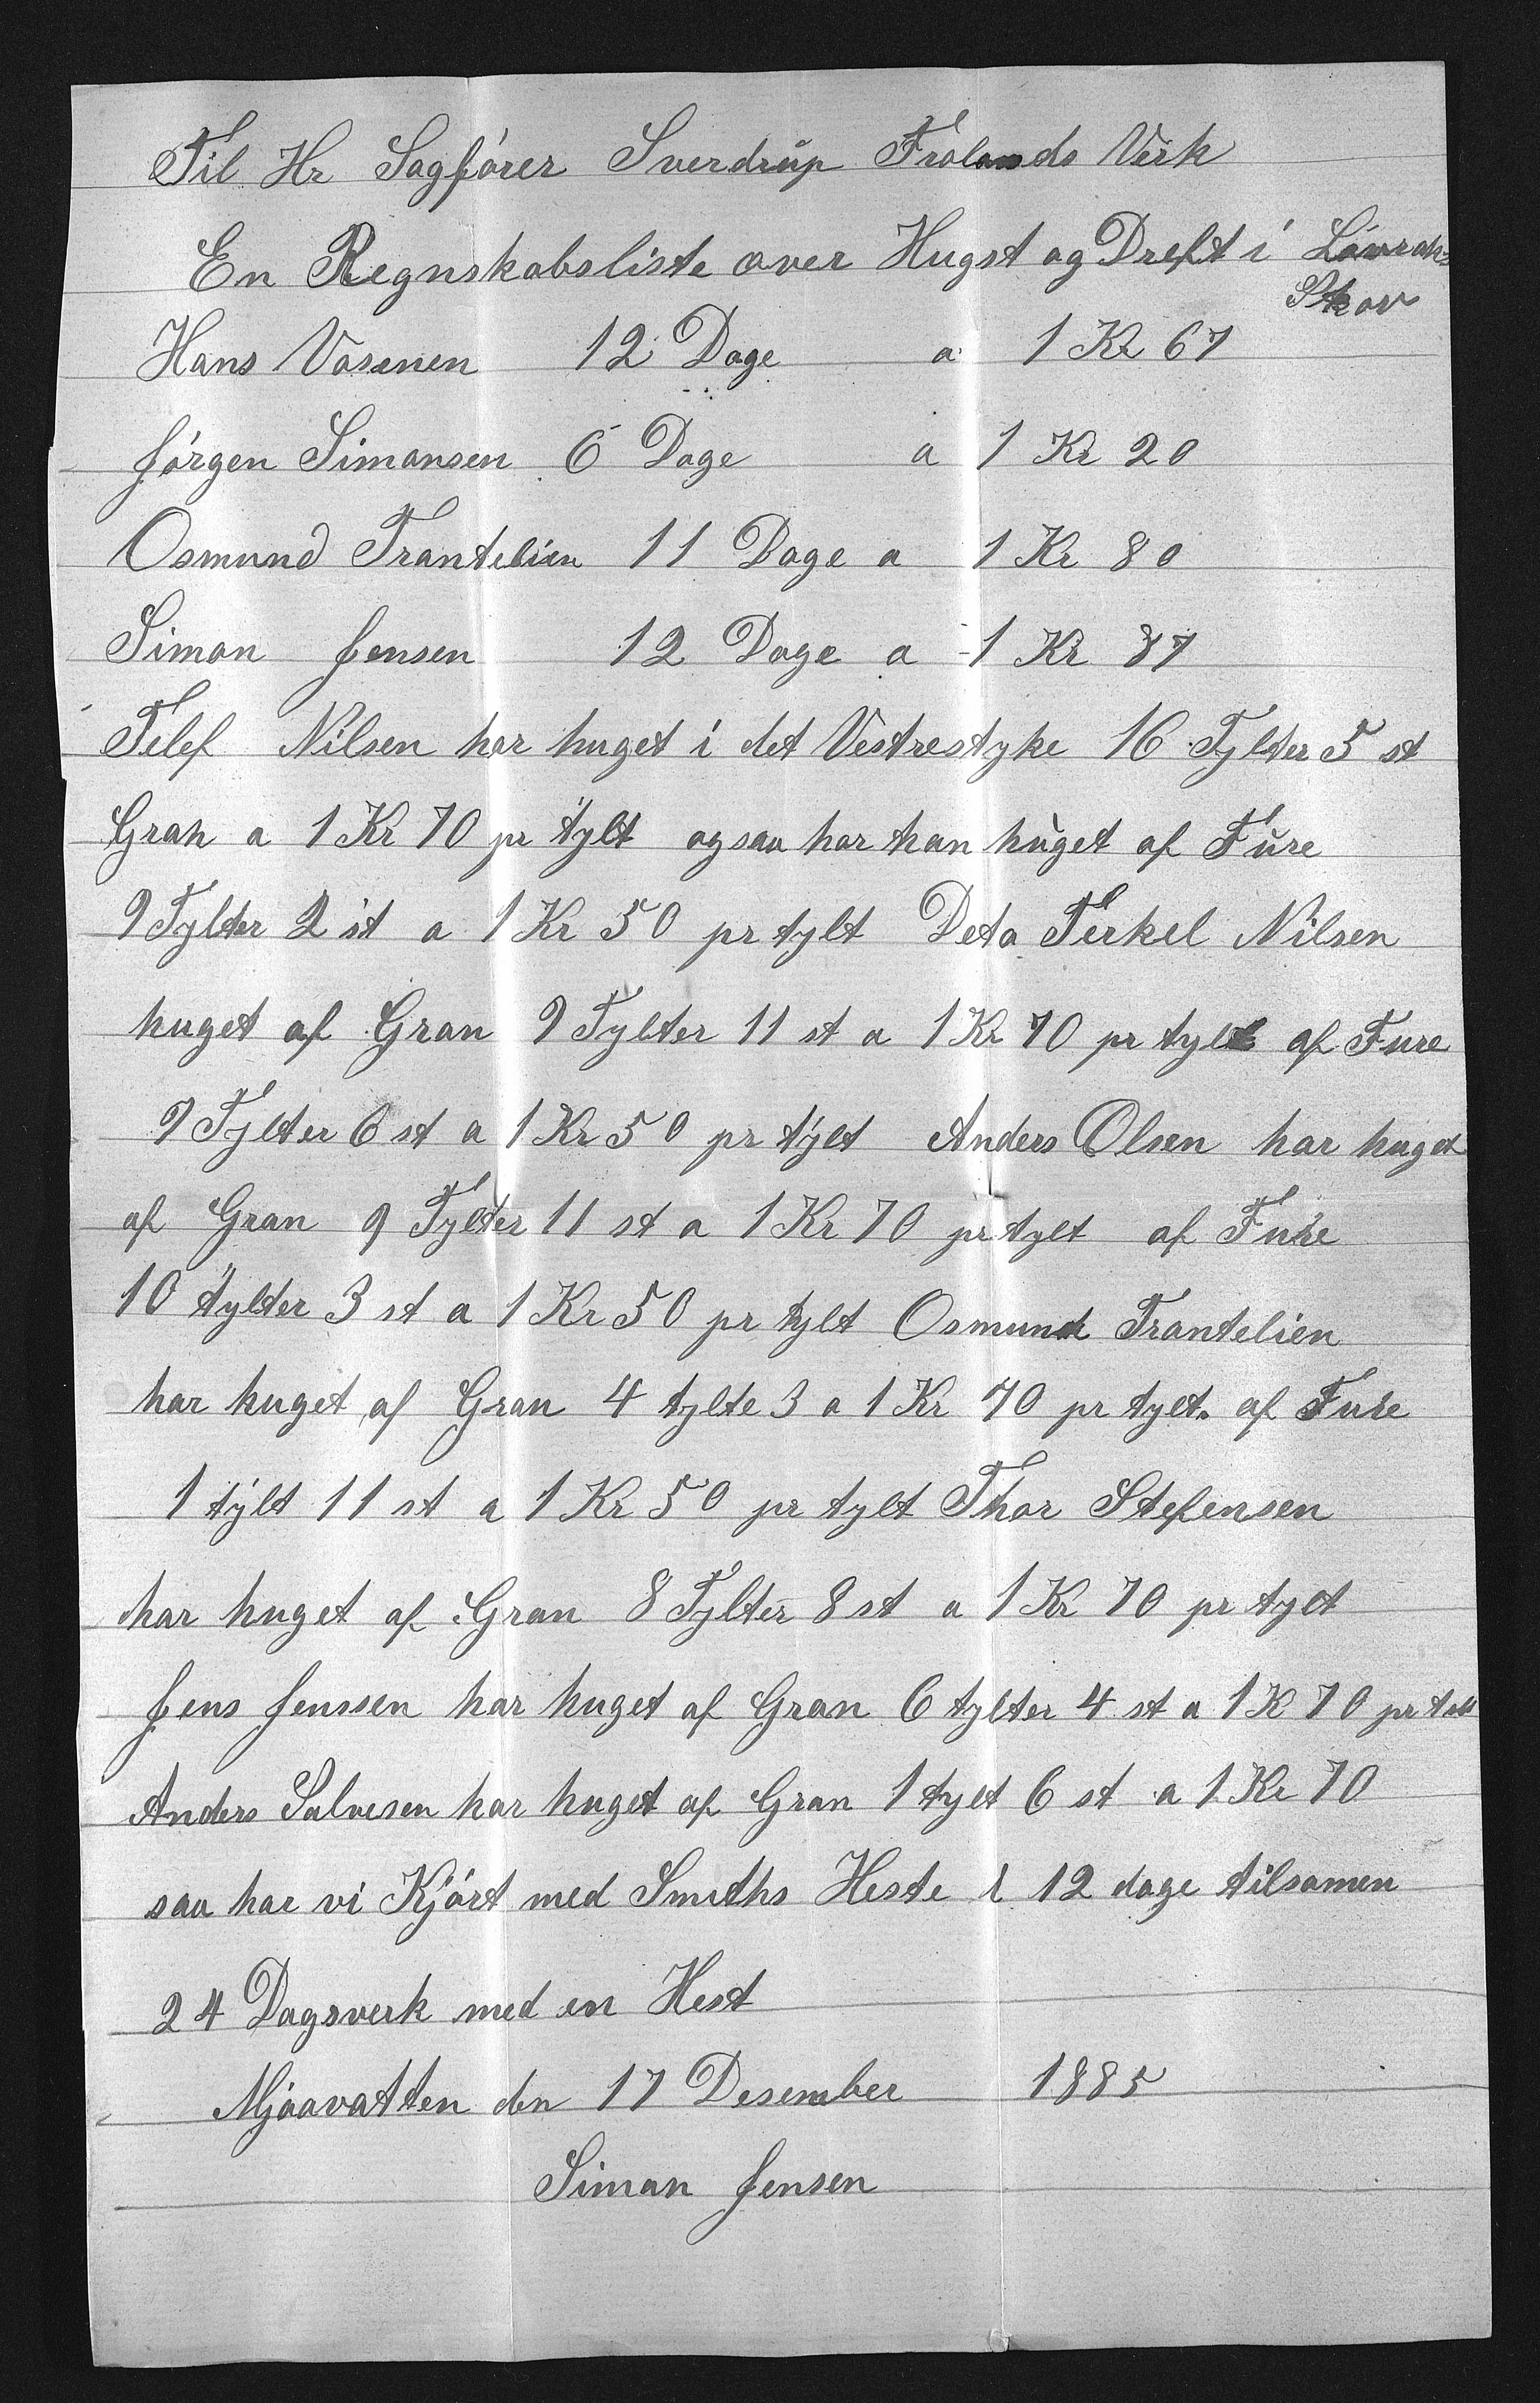 Til Hr Sagfører Sverdrup Frolands Verk
En Regnskabsliste over Hugst og Dreft i Løvrak=
Skov
Hans Vasenen 12 Dage a 1 Kr 67
Jørgen Simonsen 6 Dage a 1 Kr 20
Osmund Trantelien 11 Dage a 1 Kr 80
Simon Jensen 12 Dage a 1 Kr 87
Telef Nilsen har huget i det Vestrestyke 16 Tylter 5 st
Gran a 1 Kr 70 pr tylt ogsaa har han huget af Fure
9 Tylter 2 st a 1 Kr 50 pr tylt Deto Terkel Nilsen
huget af Gran 9 Tylter 11 st a 1 Kr 70 pr tylt af Fure
9 Tylter 6 st a 1 Kr 50 pr tylt Anders Olsen har huget
af Gran 9 Tylter 11 st a 1 Kr 70 pr tylt af Fure
10 tylter 3 st a 1 Kr 50 pr tylt Osmund Trantelien
har huget af Gran 4 tylte 3 a 1 Kr 70 pr tylt. af Fure
1 tylt 11 st a 1 Kr 50 pr tylt Thor Stefensen
har huget af Gran 8 Tylter 8 st a 1 Kr 70 pr tylt
Jens Jenssen har huget af Gran 6 tylter 4 st a 1 K 70 pr tylt
Anders Salvesen har huget af Gran 1 tylt 6 st a 1 Kr 70
saa har vi Kjørt med Smiths Heste i 12 dage tilsamen
24 Dagsverk med en Hest
Mjaavatten den 17 Desember 1885
Simon Jensen